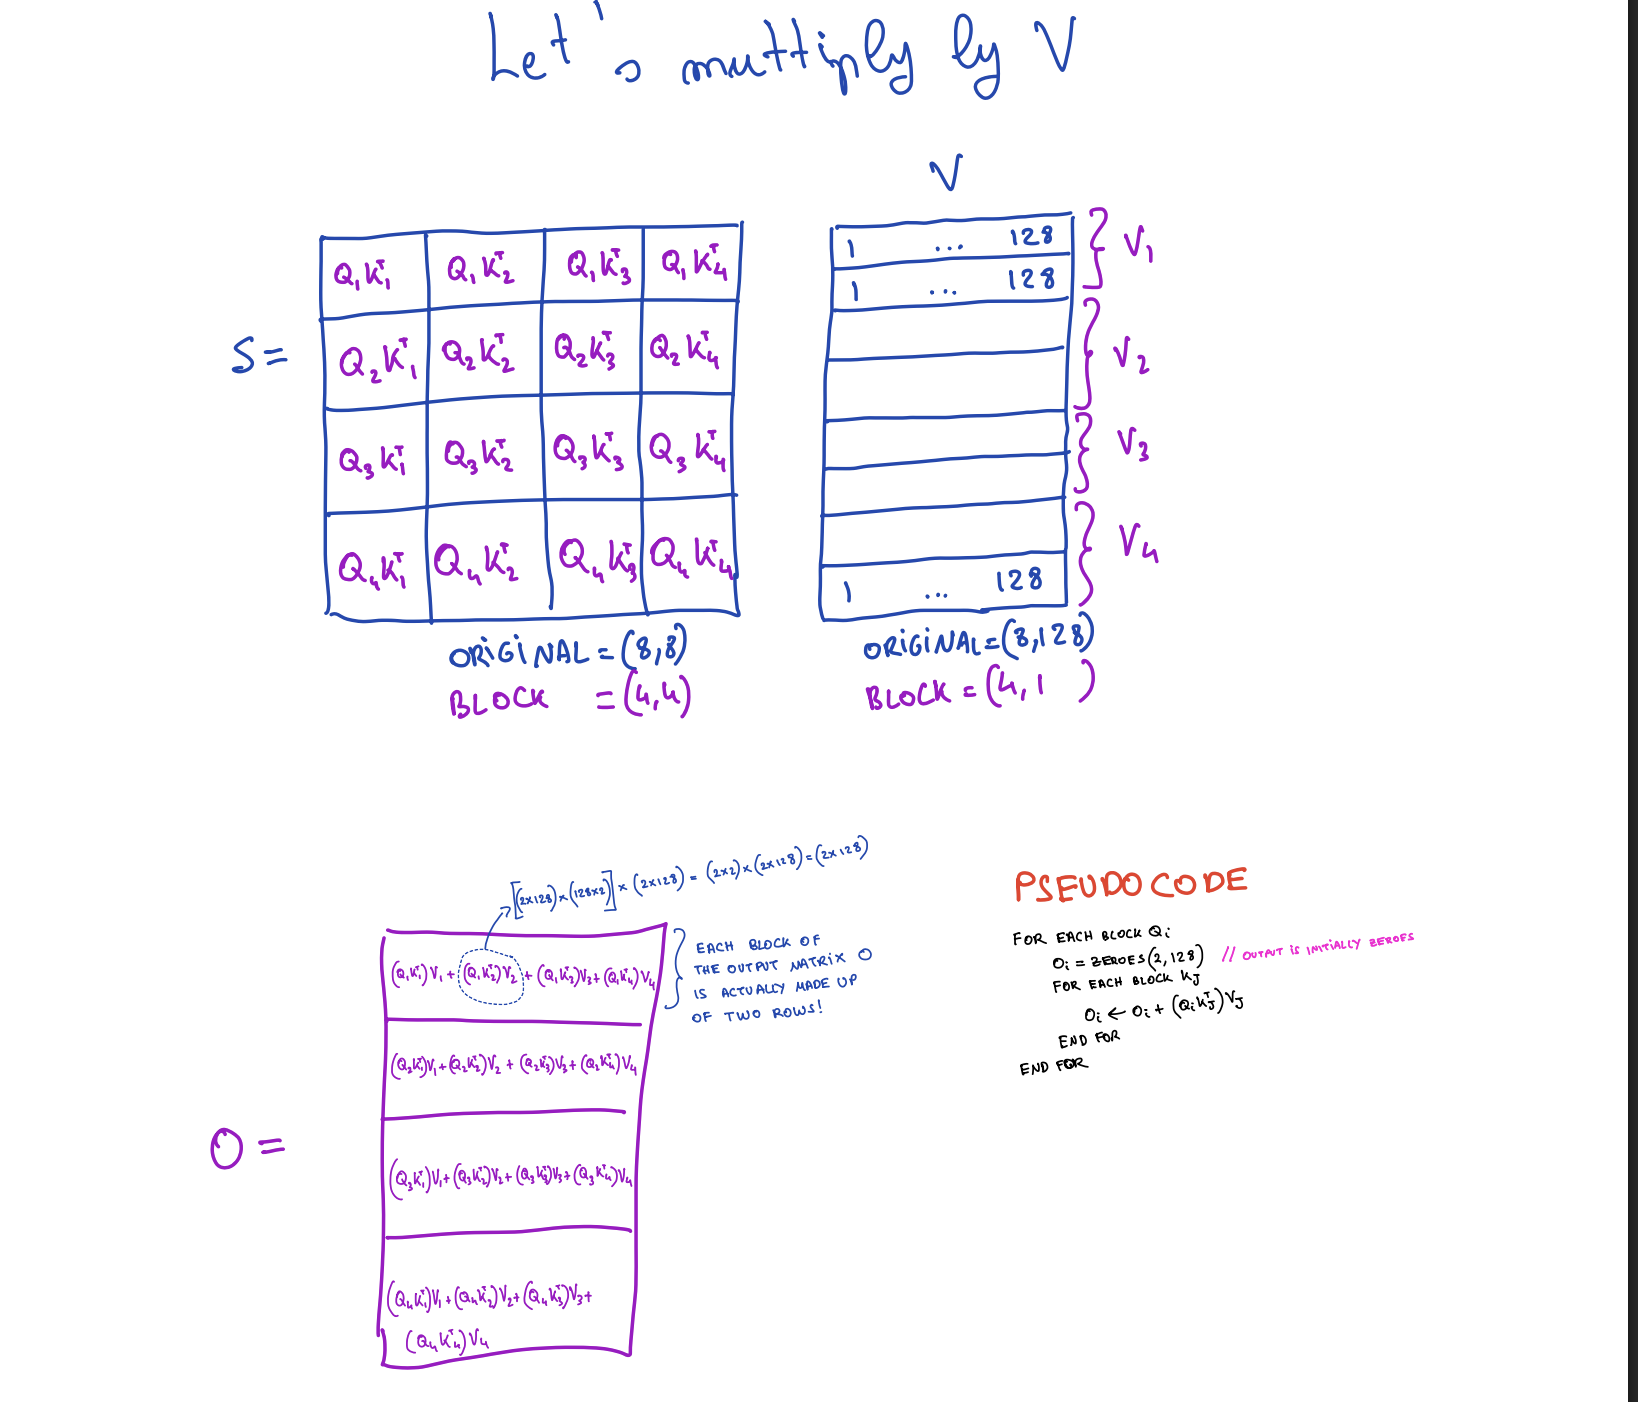 Let's multiply by V
V
S =
Q₁K₁ᵀ Q₁K₂ᵀ Q₁K₃ᵀ Q₁K₄ᵀ
Q₂K₁ᵀ Q₂K₂ᵀ Q₂K₃ᵀ Q₂K₄ᵀ
Q₃K₁ᵀ Q₃K₂ᵀ Q₃K₃ᵀ Q₃K₄ᵀ
Q₄K₁ᵀ Q₄K₂ᵀ Q₄K₃ᵀ Q₄K₄ᵀ
ORIGINAL = (8,8)
BLOCK = (4,4)
1 ... 128
1 ... 128
1 ... 128
V₁
V₂
V₃
V₄
ORIGINAL = (8,128)
BLOCK = (4,1 )
[(2x128)x(128x2)] x (2x128) = (2x2)x(2x128)=(2x128)
O =
(Q₁K₁ᵀ)V₁ + (Q₁K₂ᵀ)V₂ + (Q₁K₃ᵀ)V₃ + (Q₁K₄ᵀ)V₄
(Q₂K₁ᵀ)V₁ + (Q₂K₂ᵀ)V₂ + (Q₂K₃ᵀ)V₃ + (Q₂K₄ᵀ)V₄
(Q₃K₁ᵀ)V₁ + (Q₃K₂ᵀ)V₂ + (Q₃K₃ᵀ)V₃ + (Q₃K₄ᵀ)V₄
(Q₄K₁ᵀ)V₁ + (Q₄K₂ᵀ)V₂ + (Q₄K₃ᵀ)V₃ +
(Q₄K₄ᵀ)V₄
EACH BLOCK OF
THE OUTPUT MATRIX O
IS ACTUALLY MADE UP
OF TWO ROWS!
PSEUDOCODE
FOR EACH BLOCK Qᵢ
Oᵢ = ZEROES(2,128) // OUTPUT IS INITIALLY ZEROES
FOR EACH BLOCK KJ
Oᵢ ← Oᵢ + (QᵢKJᵀ)VJ
END FOR
END FOR